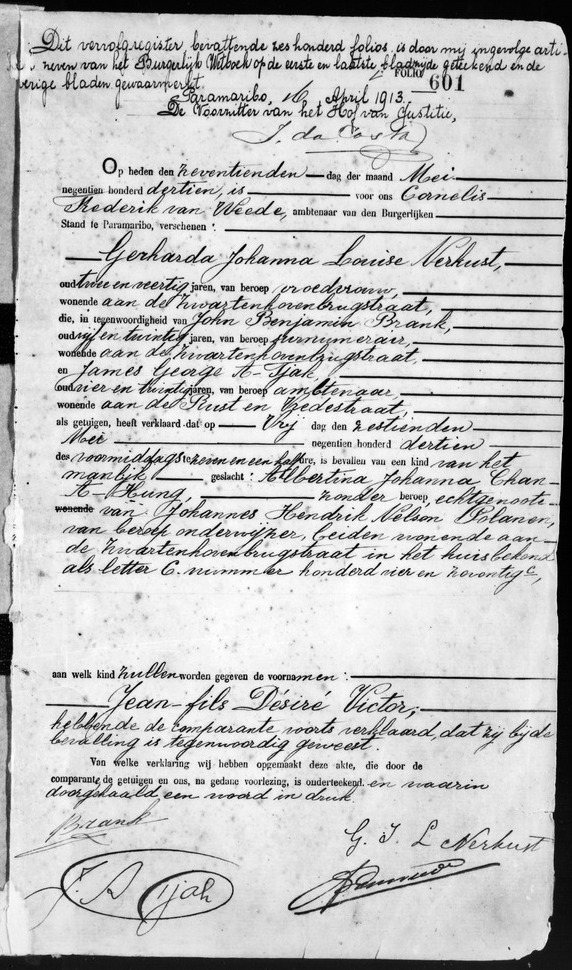 Dit vervolgregister, bevattende zes honderd folios, is door mij ingevolge arti-
zeven van het Burgerlijk Wetboek op de eerste en laatste bladzijde geteekend en de
overige bladen gewaarmerkt.
FOLIO 601
Paramaribo, 16 April 1913.
De Voorzitter van het Hof van Justitie,
J. da Costa
Op heden den zeventienden dag der maand Mei
negentien honderd dertien, is voor ons Cornelis
Frederik van Weede, ambtenaar van den Burgerlijken
Stand te Paramaribo, verschenen :
Gerharda Johanna Louise Nerkust,
oud twee en veertig jaren, van beroep vroedvrouw,
wonende aan de Zwartenhovenbrugstraat,
die, in tegenwoordigheid van John Benjamin Brank,
oud vijf en twintig jaren, van beroep surnumerair,
wonende aan de Zwartenhovenbrugstraat,
en James George A-Tjak,
oud vier en twintig jaren, van beroep ambtenaar
wonende aan de Rust en Vredestraat,
als getuigen, heeft verklaard dat op Vrij dag den zestienden
Mei negentien honderd dertien
des voormiddags te zeven en een half ure, is bevallen van een kind van het
manlijk geslacht : Albertina Johanna Chan-
A-Hung, zonder beroep, echtgenoote
wonende van Johannes Hendrik Nelson Polanen,
van beroep onderwijzer, beiden wonende aan
de Zwartenhovenbrugstraat in het huis bekend
als letter C. nummer honderd vier en negentig,
aan welk kind zullen worden gegeven de voornamen :
Jean-fils Désiré Victor,
hebbende de comparante voorts verklaard, dat zij bij de
bevalling is tegenwoordig geweest.
Van welke verklaring wij hebben opgemaakt deze akte, die door de
comparante de getuigen en ons, na gedane voorlezing, is onderteekend. en waarin
doorgehaald een woord in druk
Brank
G. J. L Nerkust
J. A Tjak